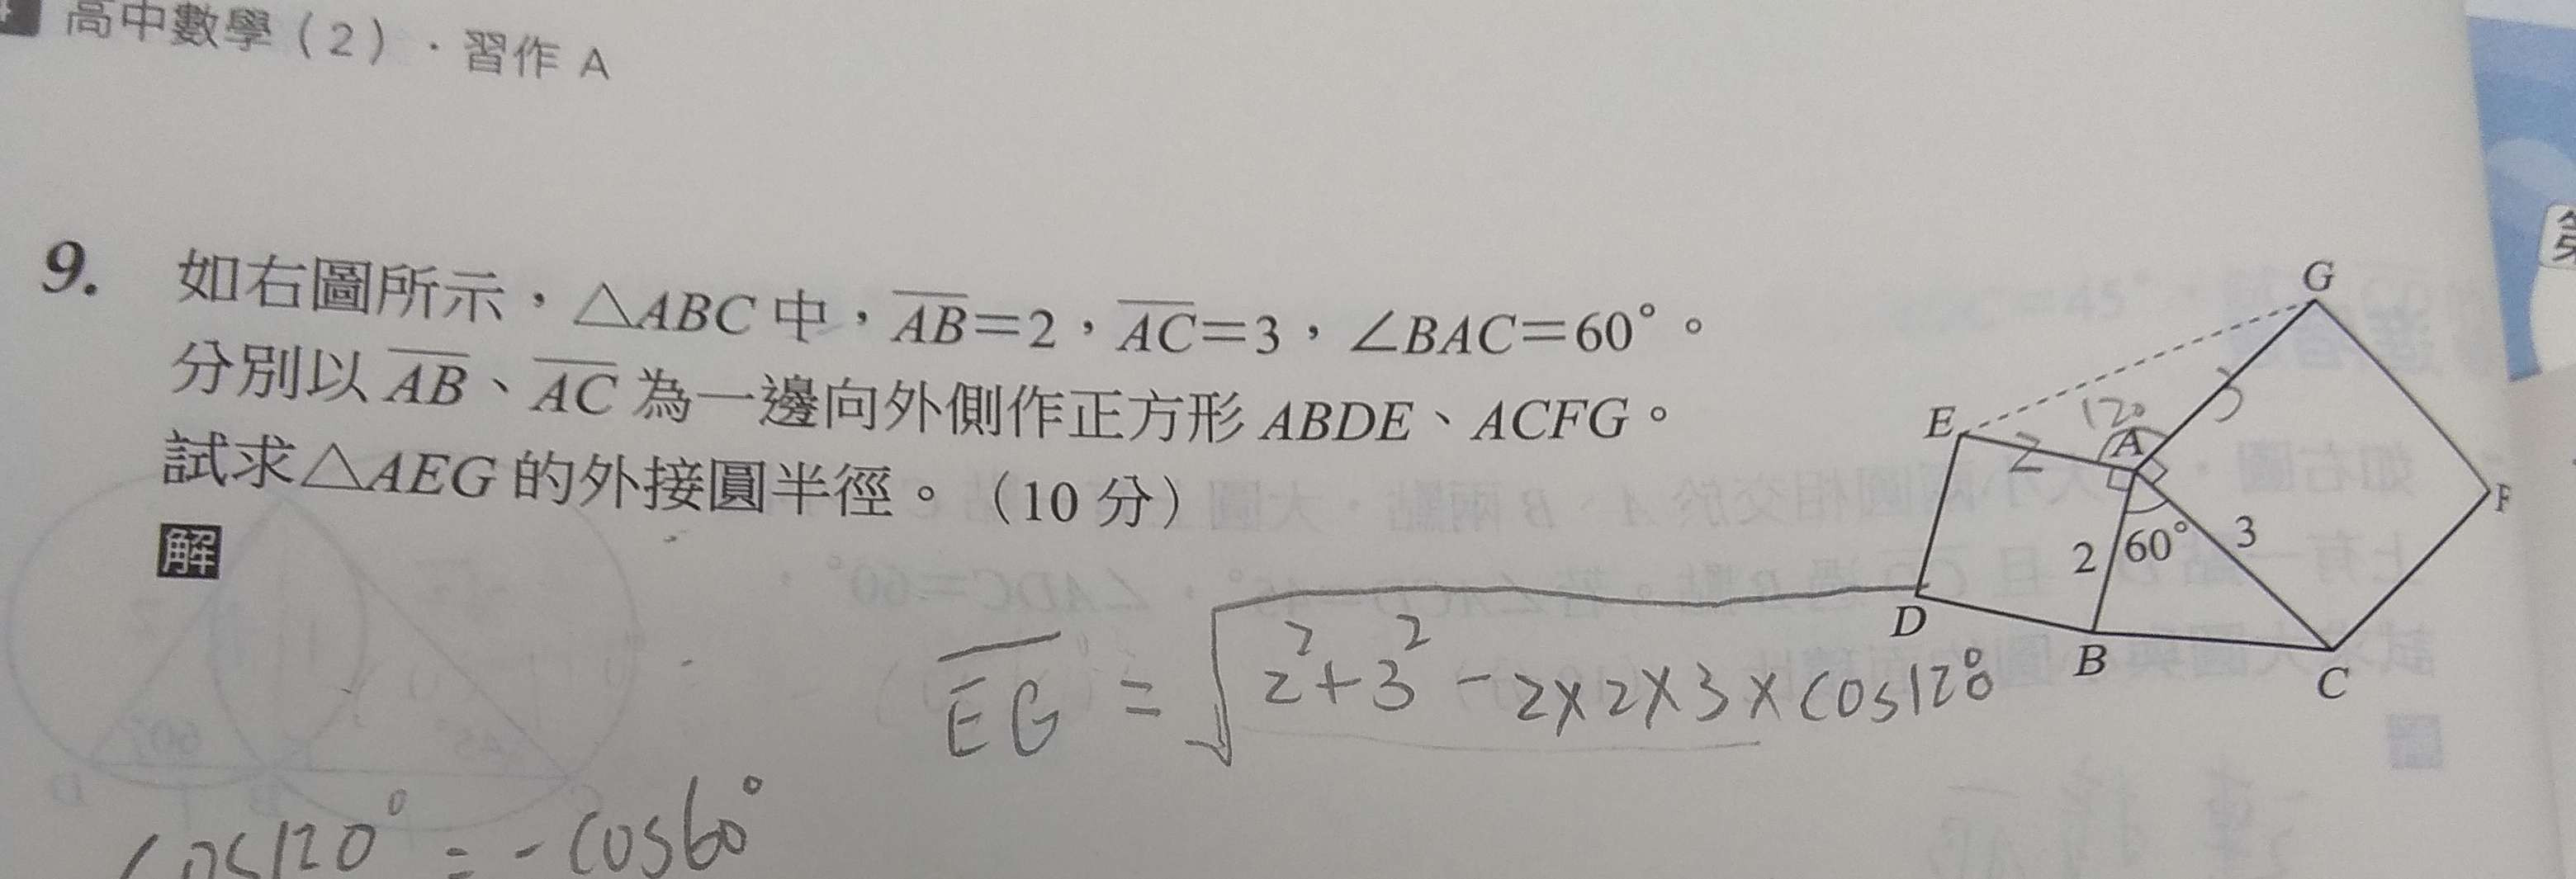 高中數學（2）．習作 A
9. 如右圖所示，△ABC 中，AB=2，AC=3，∠BAC=60°。
分別以 AB、AC 為一邊向外側作正方形 ABDE、ACFG。
試求△AEG 的外接圓半徑。（10 分）
解
G
E
120
3
2
A
F
2
60°
3
D
B
C
EG = √2²+3²-2×2×3×cos120°
cos120° = -cos60°